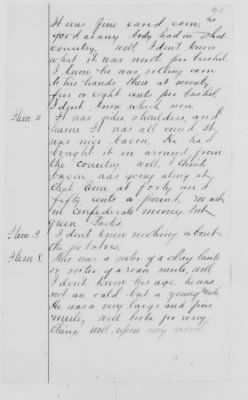 It was fine sand corn as
good as any body had in that
country. Well I don't know
what it was worth per bushel
I know he was selling corn
to his hands there at seventy
five or eight cents per bushel
I dont know which now.
Item 2 It was sides shoulders, and
hams It was all cured It
was nice bacon, He had
bought it in around from
the country. Well I think
bacon was going along at
that time at forty and
fifty cents a pound, not
in Confederate money but
green backs.
Item 3 I don't know nothing about
the potatoes.
Item 8 This was a sorter of a clay bank
or sorter of a roan mule, well
I don't know his age, he was
not an oald but a young mule
He was a very large and fine
mule, well broke for every
thing well, upon my word